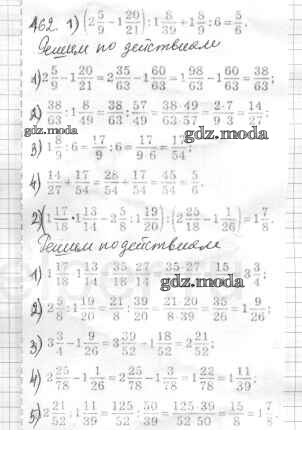 462. 1) (2 5/9 - 1 20/21) : 1 8/39 + 1 8/9 : 6 = 5/6.
Решим по действиям
1) 2 5/9 - 1 20/21 = 2 35/63 - 1 60/63 = 1 98/63 - 1 60/63 = 38/63;
2) 38/63 : 1 8/49 = 38/63 : 57/49 = 38·49/63·57 = 2·7/9·3 = 14/27;
gdz.moda
3) 1 8/9 : 6 = 17/9 : 6 = 17/9·6 = 17/54;
gdz.moda
4) 14/27 + 17/54 = 28/54 + 17/54 = 45/54 = 5/6.
2) (1 17/18 · 1 13/14 - 2 5/8 : 1 19/20) : (2 25/18 - 1 1/26) = 1 7/8.
Решим по действиям
gdz.moda
1) 1 17/18 · 1 13/14 = 35/18 · 27/14 = 35·27/18·14 = 15/4 = 3 3/4;
2) 2 5/8 : 1 19/20 = 21/8 : 39/20 = 21·20/8·39 = 35/26 = 1 9/26;
3) 3 3/4 - 1 9/26 = 3 39/52 - 1 18/52 = 2 21/52;
4) 2 25/78 - 1 1/26 = 2 25/78 - 1 3/78 = 1 22/78 = 1 11/39;
5) 2 21/52 : 1 11/39 = 125/52 : 50/39 = 125·39/52·50 = 15/8 = 1 7/8.